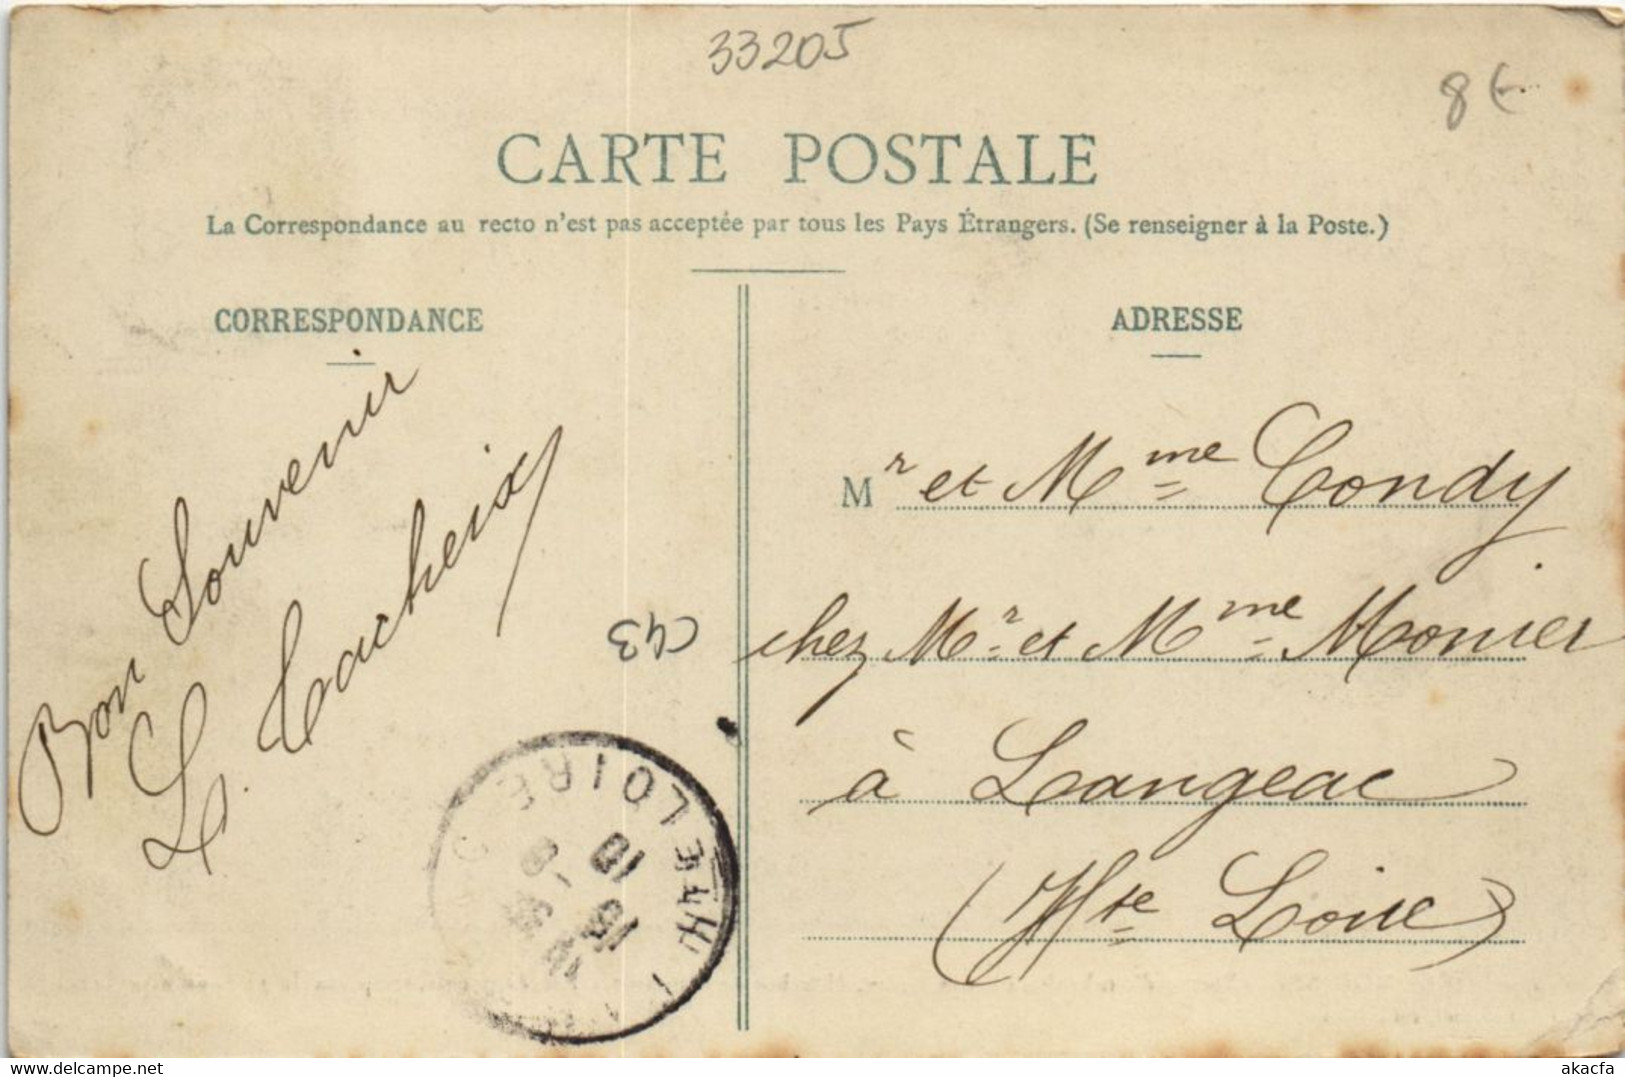 33205
8€
CARTE POSTALE
La Correspondance au recto n'est pas acceptée par tous les Pays Étrangers. (Se renseigner à la Poste.)
CORRESPONDANCE
Bon Souvenir
L. Cacheix
C43
ADRESSE
Mr et Mme Condy
chez Mr et Mme Monier
à Langeac
(Hte Loire)
HTE LOIRE
delcampe.net
akacfa